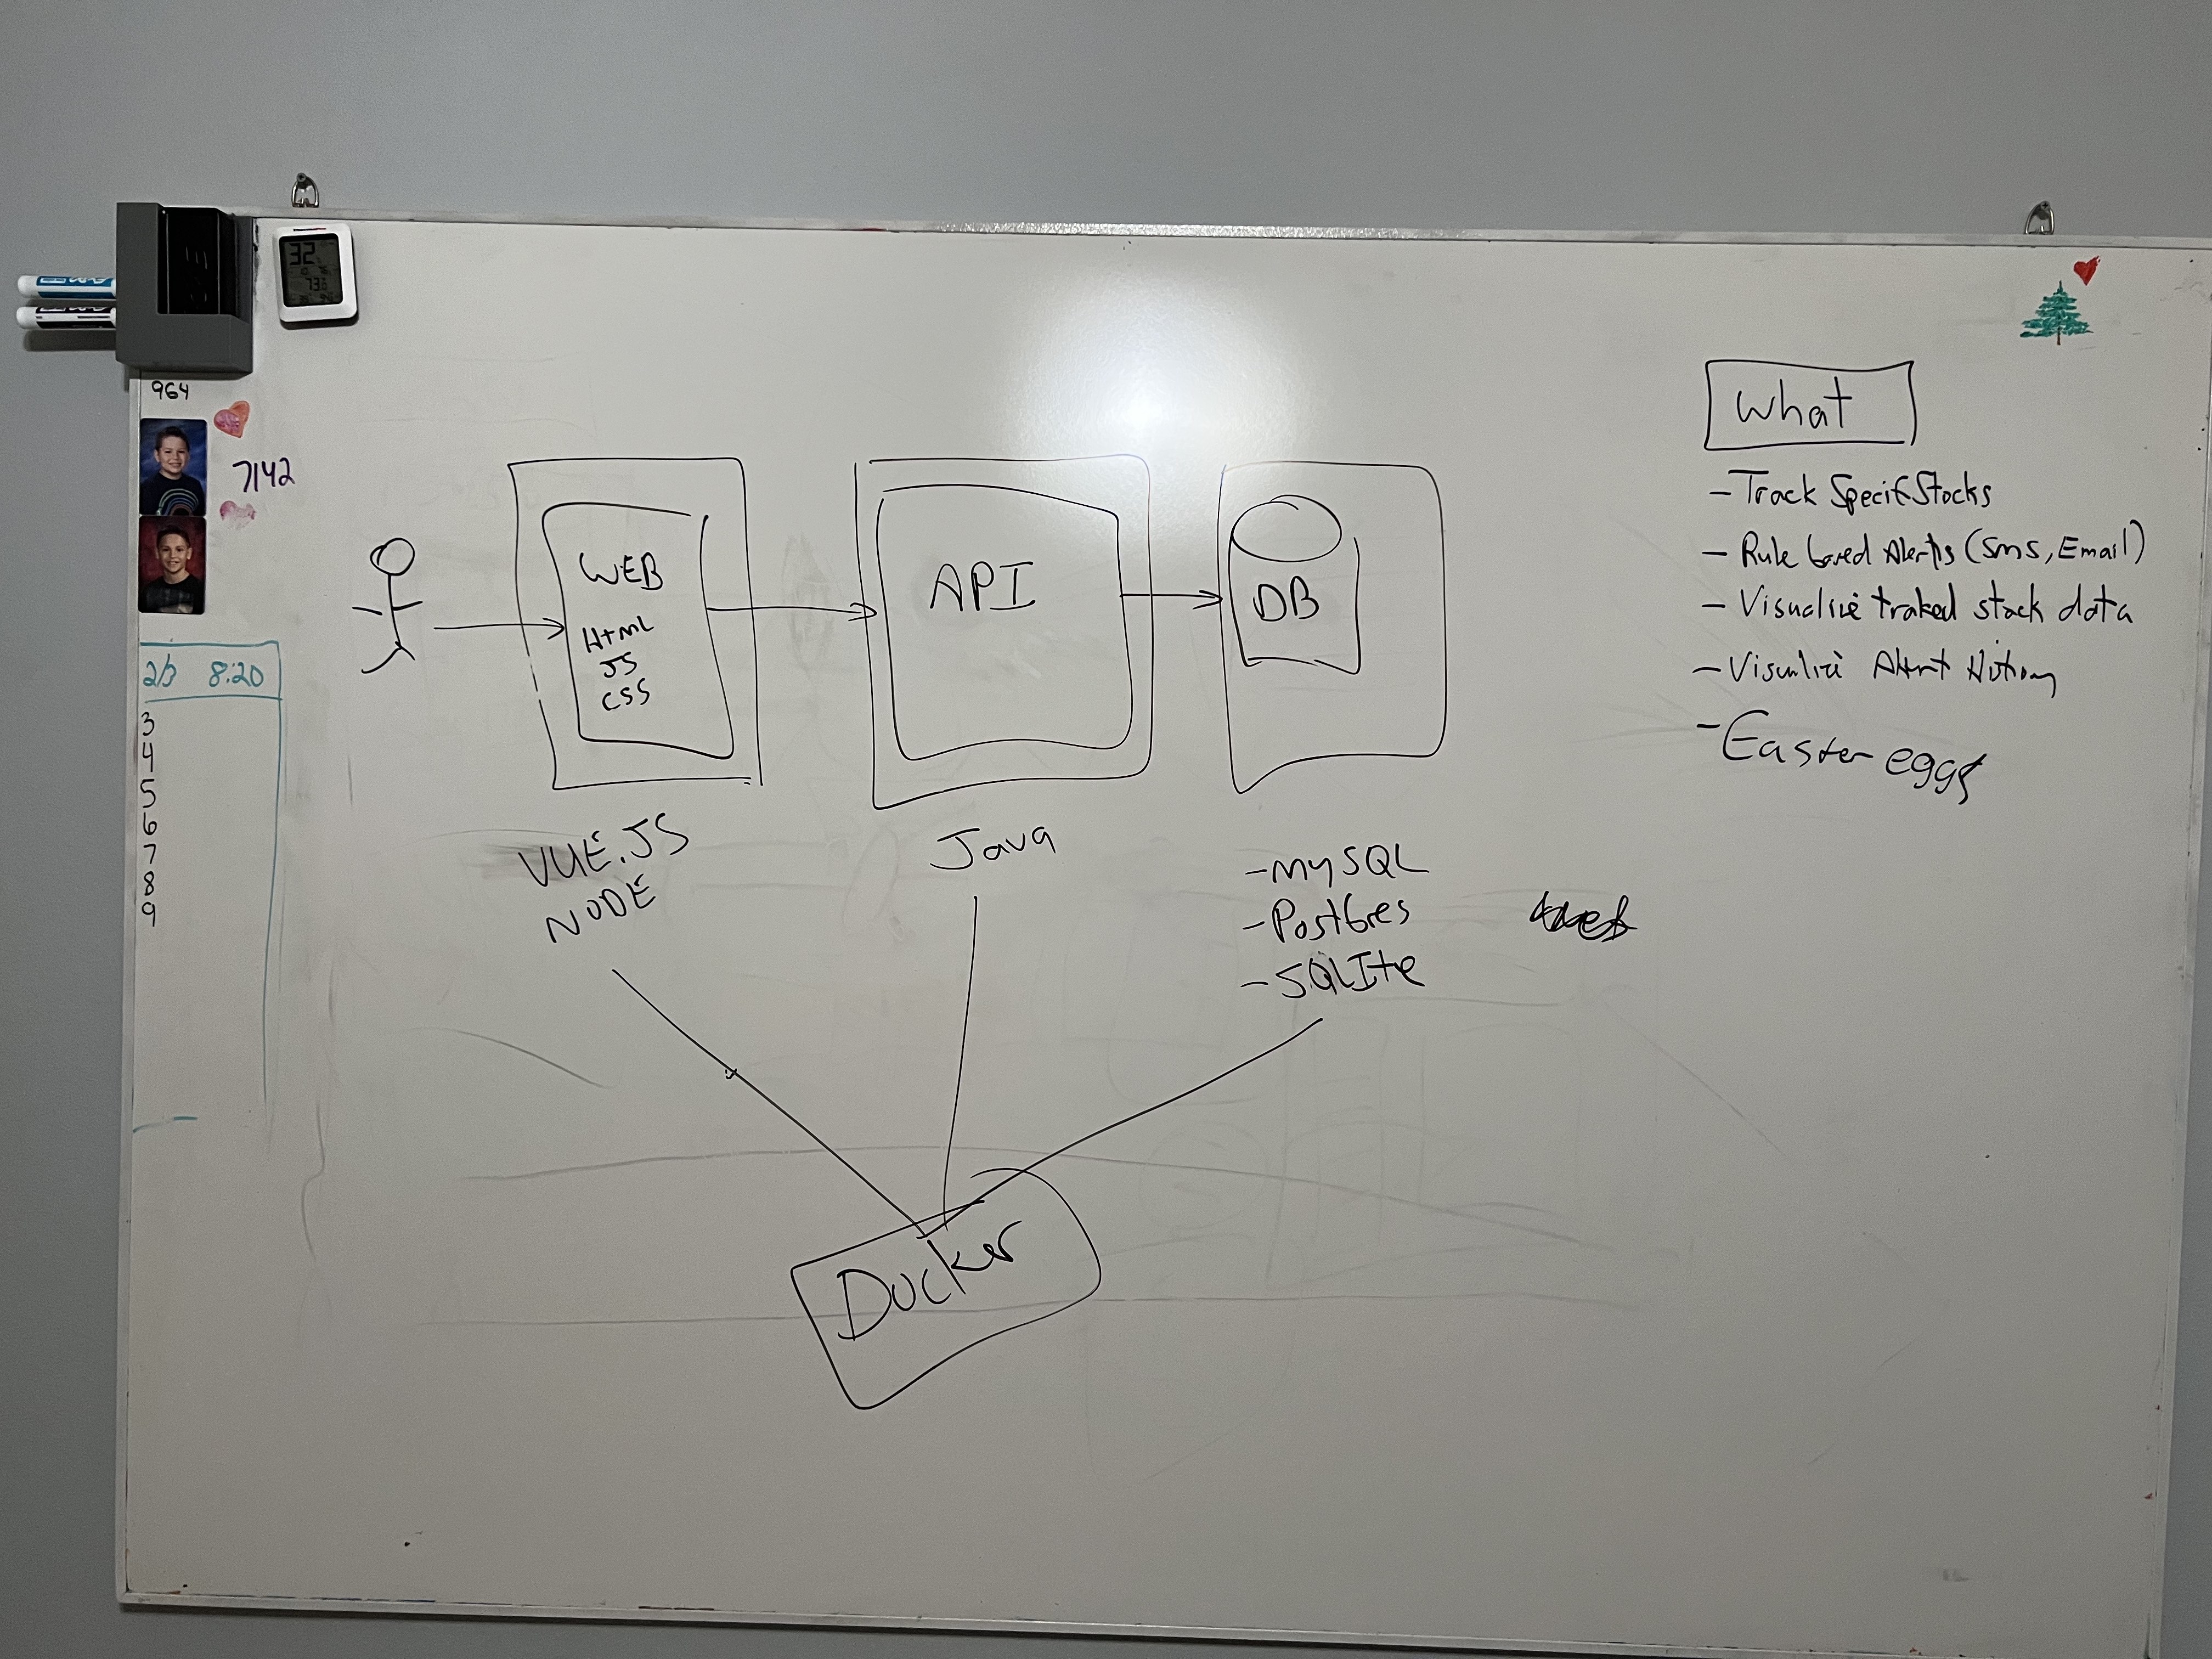 32
73
964
7142
2/3 8:20
3
4
5
6
7
8
9
WEB
HTML
JS
CSS
API
DB
VUE.JS
NODE
Java
-MySQL
-PostGres
-SQLIte
Docker
What
- Track Specif Stocks
- Rule based Alerts (SMS, Email)
- Visualize traked stock data
- Visualize Alert History
- Easter eggs